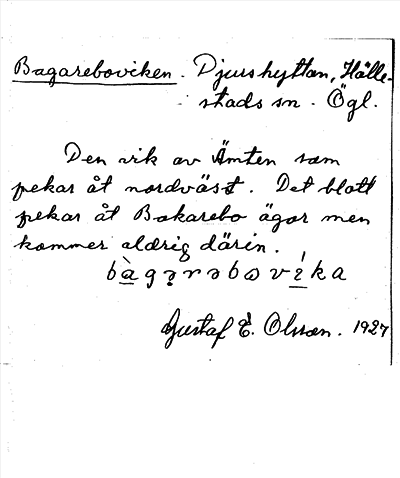 Bagareboviken. Djurshyttan, Hälle-
stads sn. Ögl.
Den vik av Ämten som
pekar åt nordväst. Det blott
pekar åt Bakarebo ägor men
kommer aldrig därin.
Gustaf E. Olsson. 1927